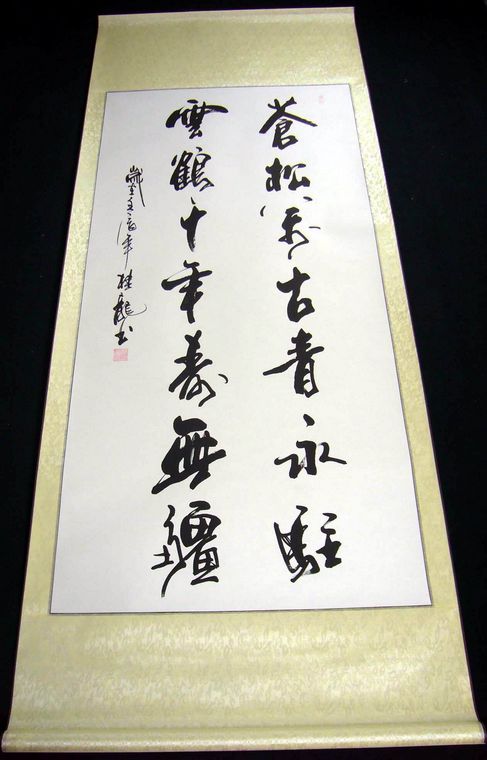 蒼松萬古青永駐
雲鶴千年壽無疆
歲在壬午年桂龍書